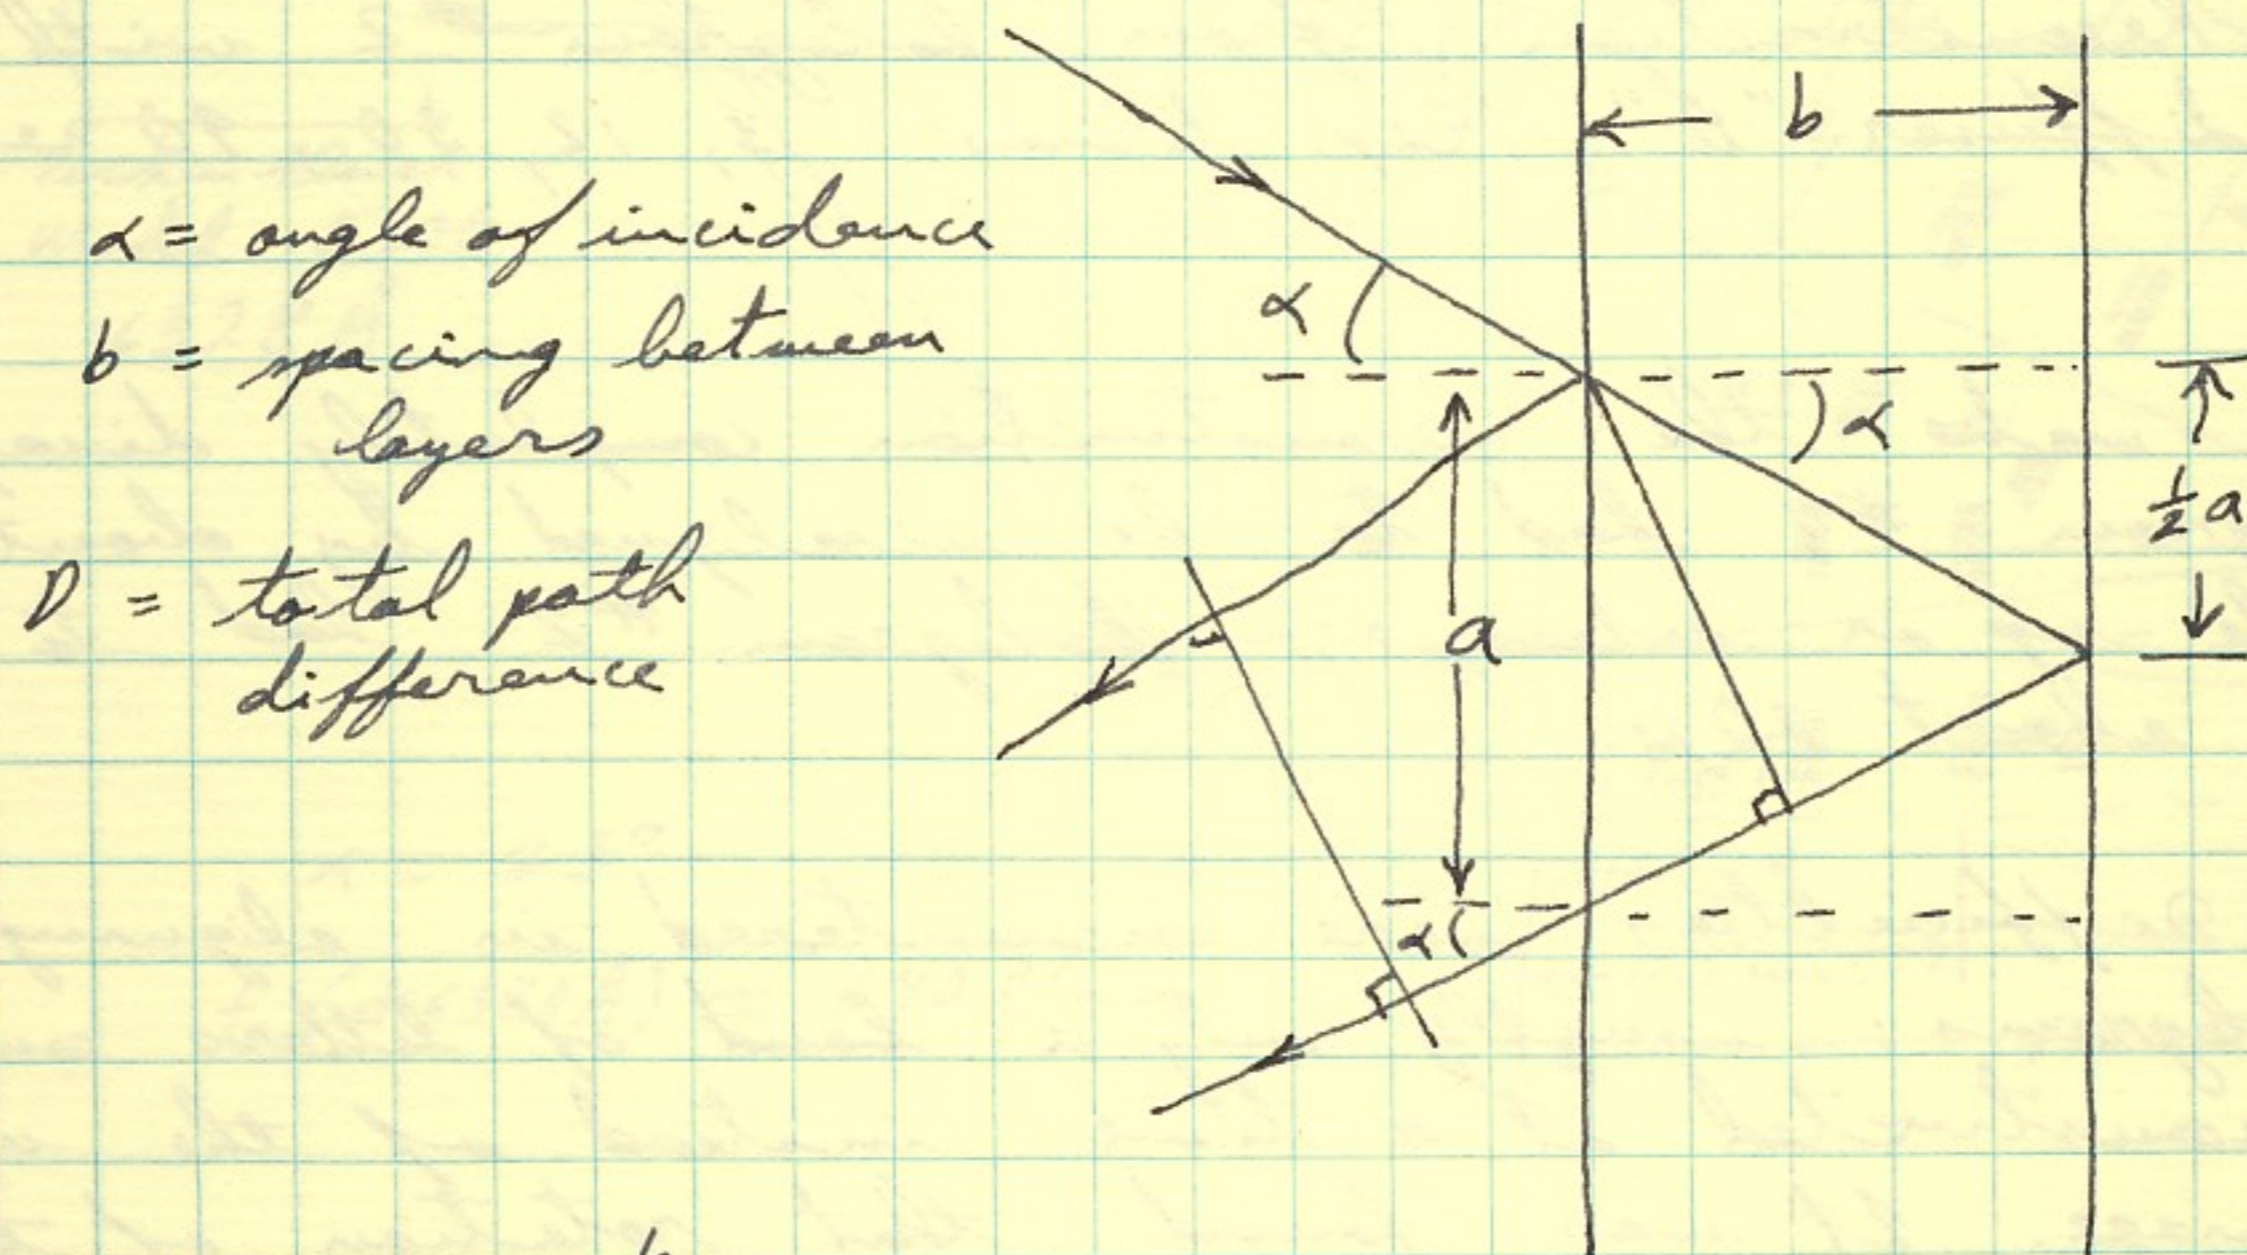 α = angle of incidence
b = spacing between
layers
D = total path
difference
b
α
α
½a
a
α